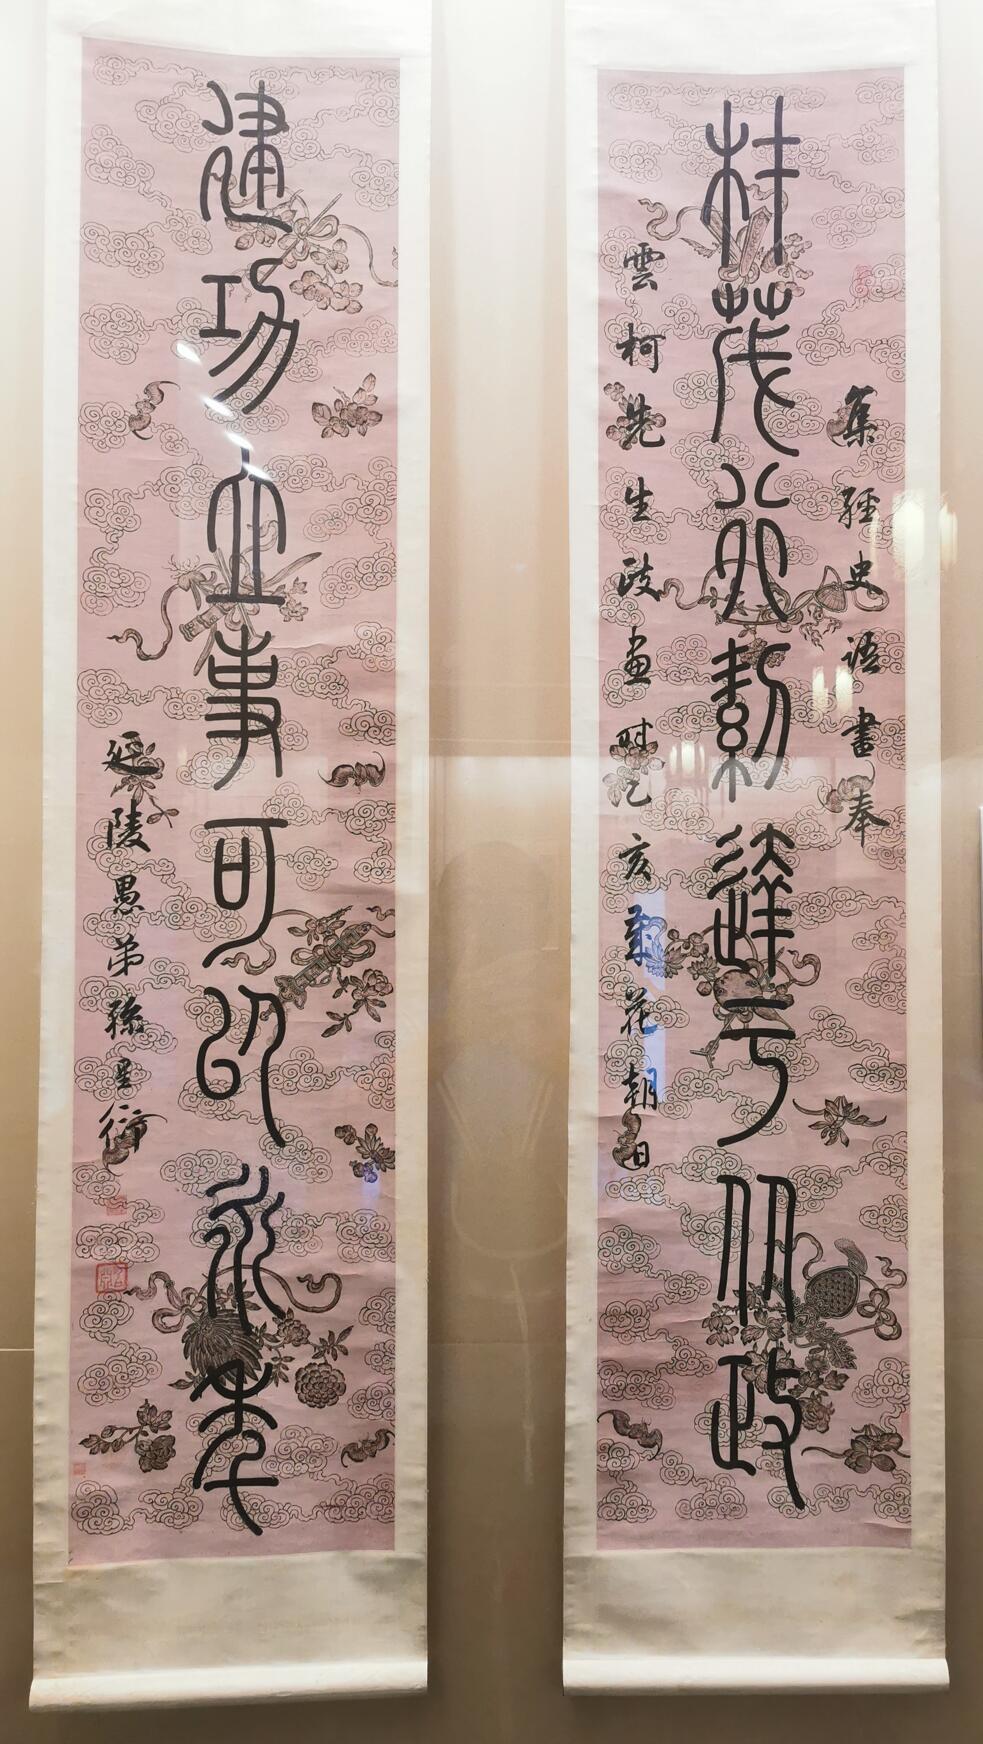 集經史語書奉
材茂行絜達于从政
雲柯先生政畫时乙亥花朝日
建功立事可㠯永年
延陵愚弟孫星衍